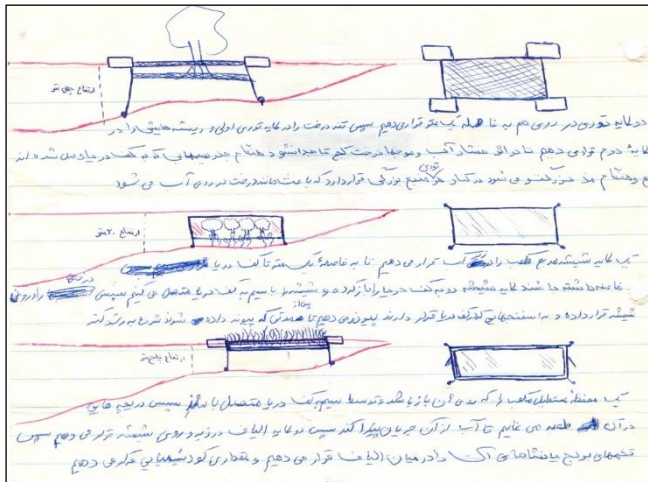 ارتفاع چهل متر
دو لایه توری در روی هم به فاصله یک متر قرار می دهیم سپس تنه درخت را در لایه توری اولی و ریشه هایش را در
لایهٔ دوم قرار می دهیم تا در اثر فشار آب و موجها درخت کج تا جدا نشود هنگام جذر سیمهای که به کف دریا وصل شده اند
هنگام مد می شود در کنار منبع بزرگی قرار دارد که باعث ماندن درخت در روی آب می شود
ارتفاع ۲۰ متر
یک لایه شیشه مربع را در آب قرار می دهیم تا به فاصلهٔ یک متر تا کف دریا
فاصله داشته باشد لایه شیشه دو به کف دریا را باز کرده و شیشه را با سیم به کف دریا متصل می کنیم سپس را روی
شیشه قرار داده و به که در کف دریا قرار دارند پیوند می دهیم تا مدتی که پیوند داده شروع به رشد کند
ارتفاع پنج متر
یک محفظه مستطیل که روی آن باز باشد و توسط سیم به کف دریا متصل سپس دریچه هایی
در آن می نماییم تا آب از آن جریان پیدا کند سپس دو لایه الیاف در زیر و روی شیشه قرار می دهیم سپس
تخمهای برنج یا نشاهای آن را در میان الیاف قرار می دهیم و مقداری کود شیمیایی قرار می دهیم